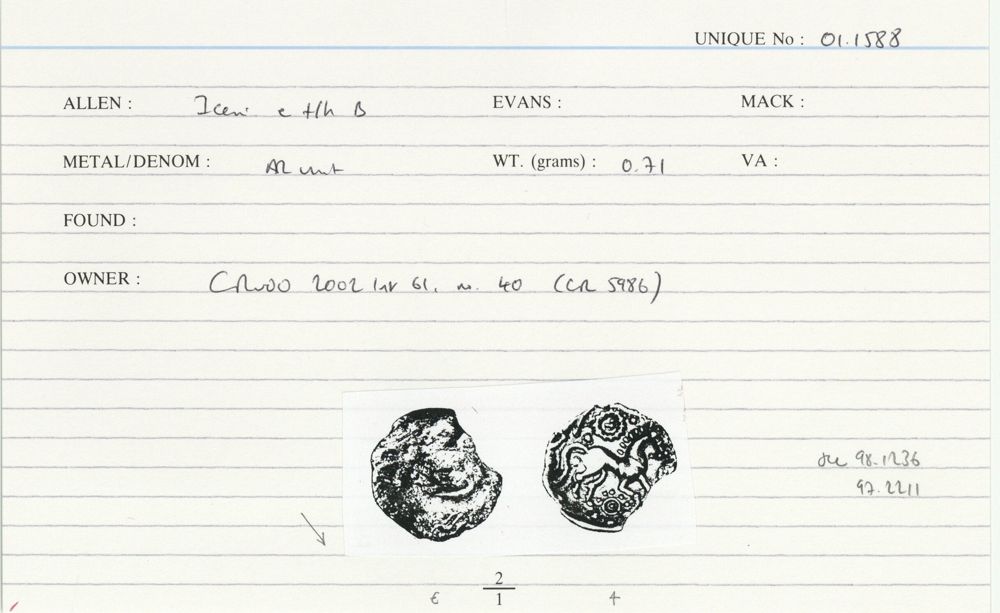 UNIQUE No : 01.1588
ALLEN : Iceni e f/h B EVANS : MACK :
METAL/DENOM : AR unit WT. (grams) : 0.71 VA :
FOUND :
OWNER : CR 2002 list 61, no. 40 (CR 5986)
98.1236
97.2211
2
1